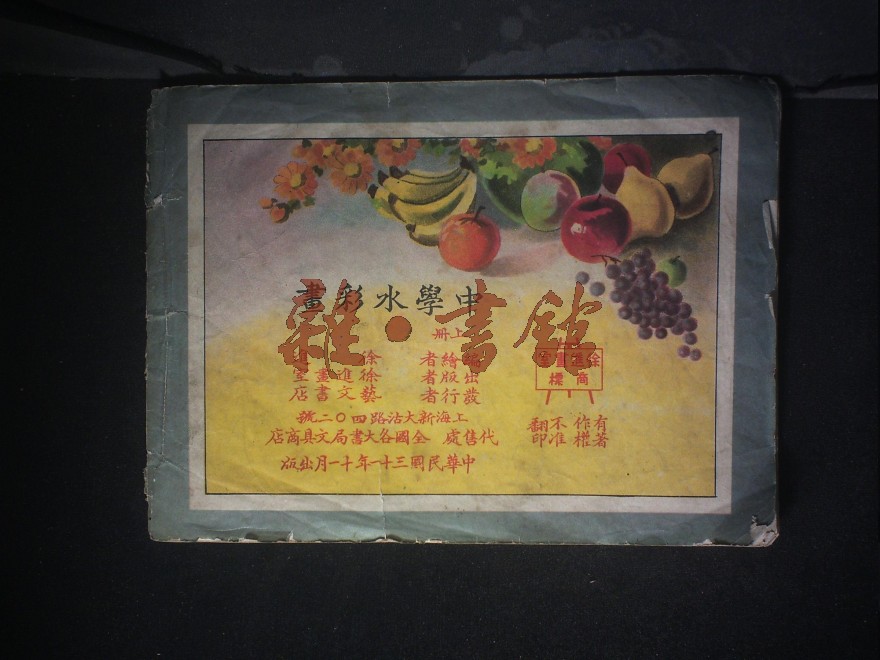 中學水彩畫
雜•書館
上册
編繪者 徐進
出版者 徐進畫室
發行者 藝文書店
上海新大沽路四〇二號
代售處 全國各大書局文具商店
中華民國三十一年十一月出版
徐進畫室
商標
有著
作權
不准
翻印